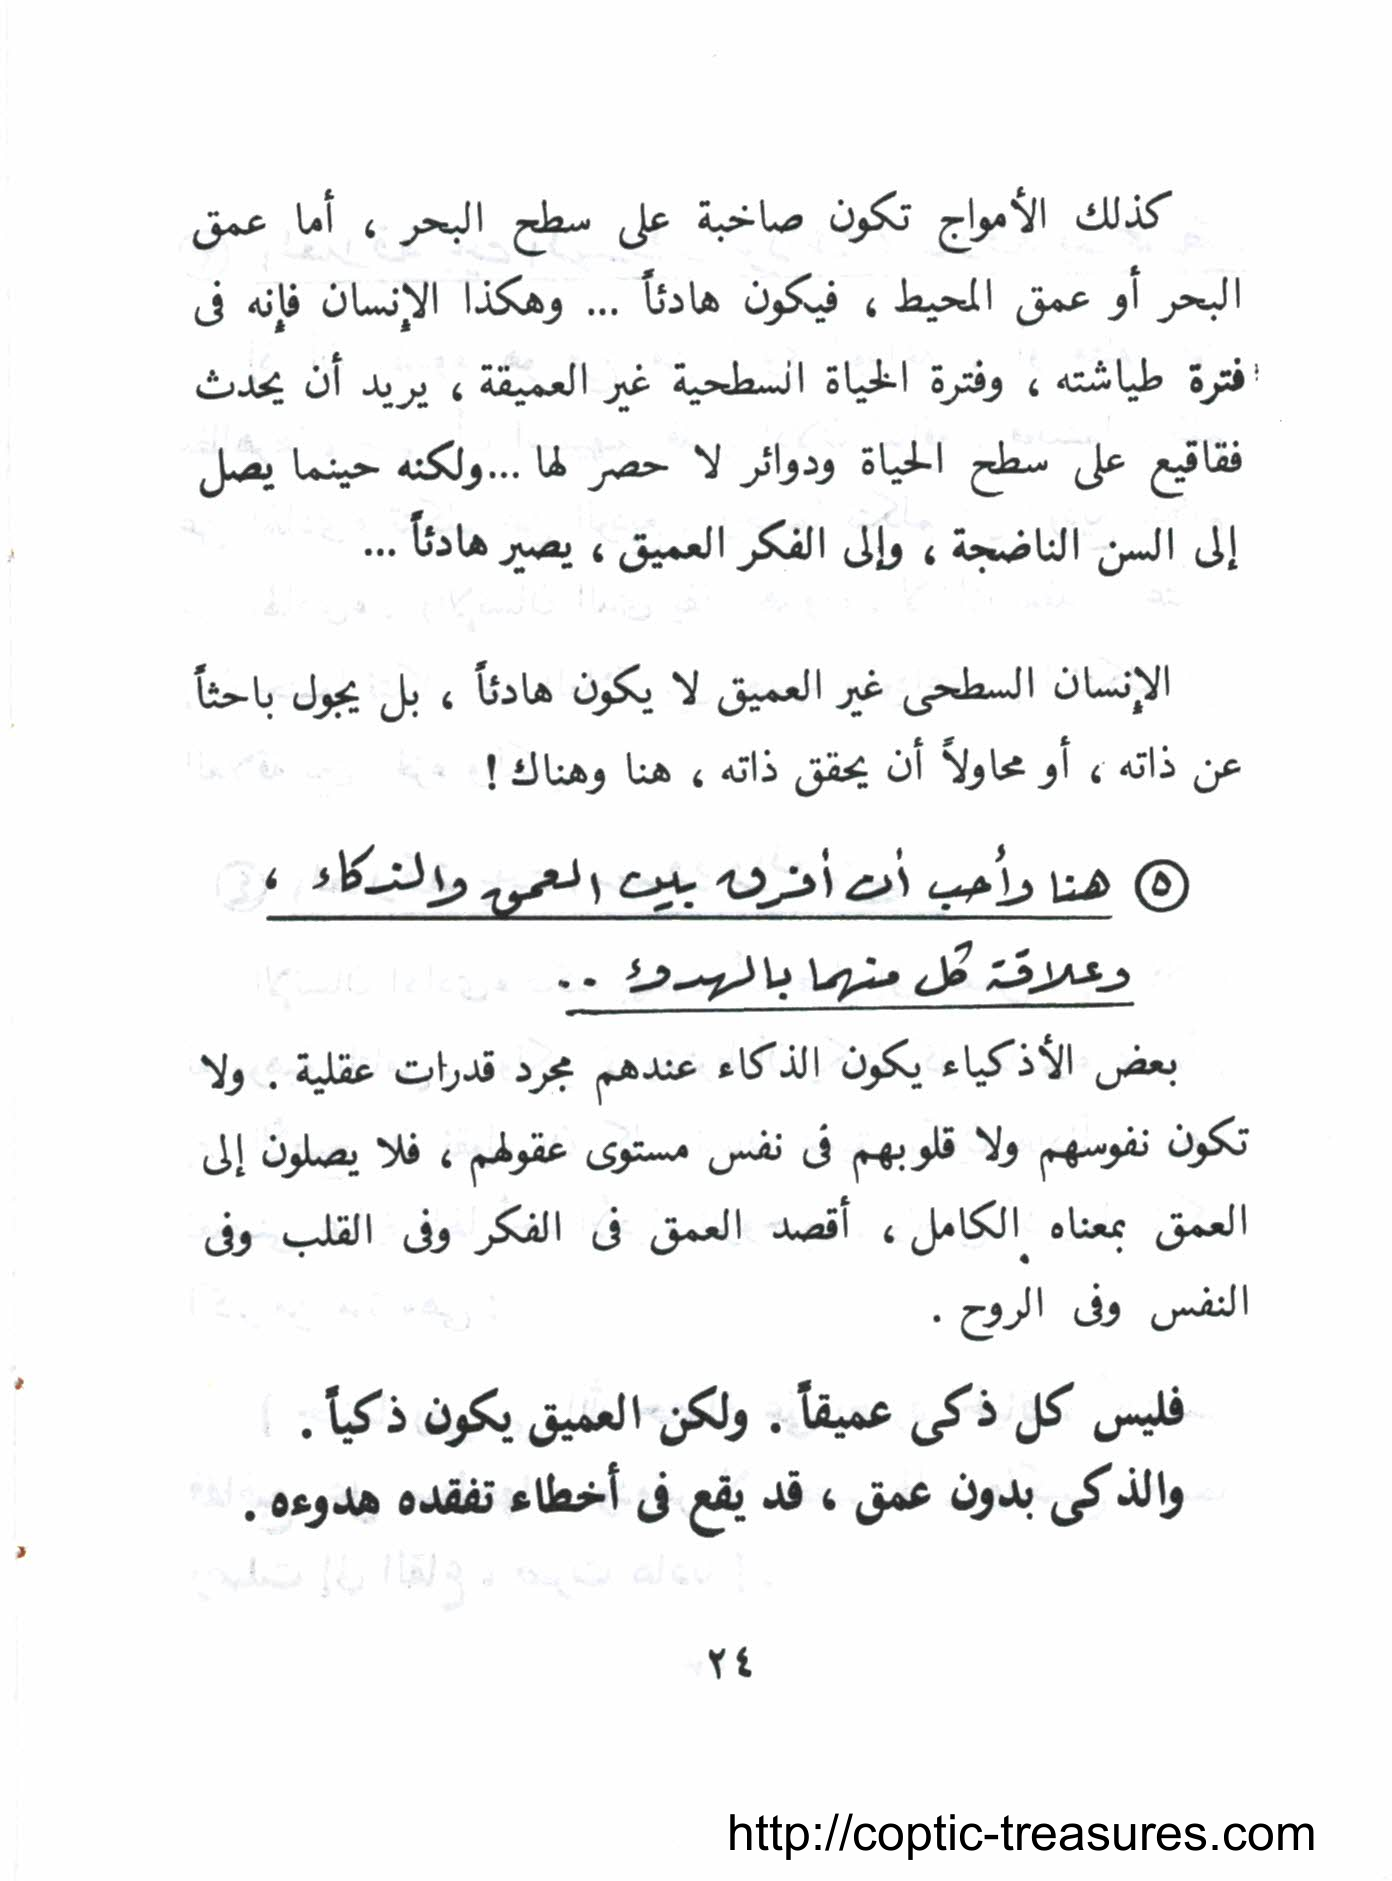 كذلك الأمواج تكون صاخبة على سطح البحر ، أما عمق
البحر أو عمق المحيط ، فيكون هادئاً ... وهكذا الإنسان فإنه فى
فترة طياشته ، وفترة الحياة السطحية غير العميقة ، يريد أن يحدث
فقاقيع على سطح الحياة ودوائر لا حصر لها ...ولكنه حينما يصل
إلى السن الناضجة ، وإلى الفكر العميق ، يصير هادئاً ...
الإنسان السطحى غير العميق لا يكون هادئاً ، بل يجول باحثاً
عن ذاته ، أو محاولاً أن يحقق ذاته ، هنا وهناك !
٥ هنا وأحب أن أفرق بين العمق والذكاء ،
وعلاقة كل منهما بالهدوء ..
بعض الأذكياء يكون الذكاء عندهم مجرد قدرات عقلية . ولا
تكون نفوسهم ولا قلوبهم فى نفس مستوى عقولهم ، فلا يصلون إلى
العمق بمعناه الكامل ، أقصد العمق فى الفكر وفى القلب وفى
النفس وفى الروح .
فليس كل ذكى عميقاً . ولكن العميق يكون ذكياً .
والذكى بدون عمق ، قد يقع فى أخطاء تفقده هدوءه .
٢٤
http://coptic-treasures.com